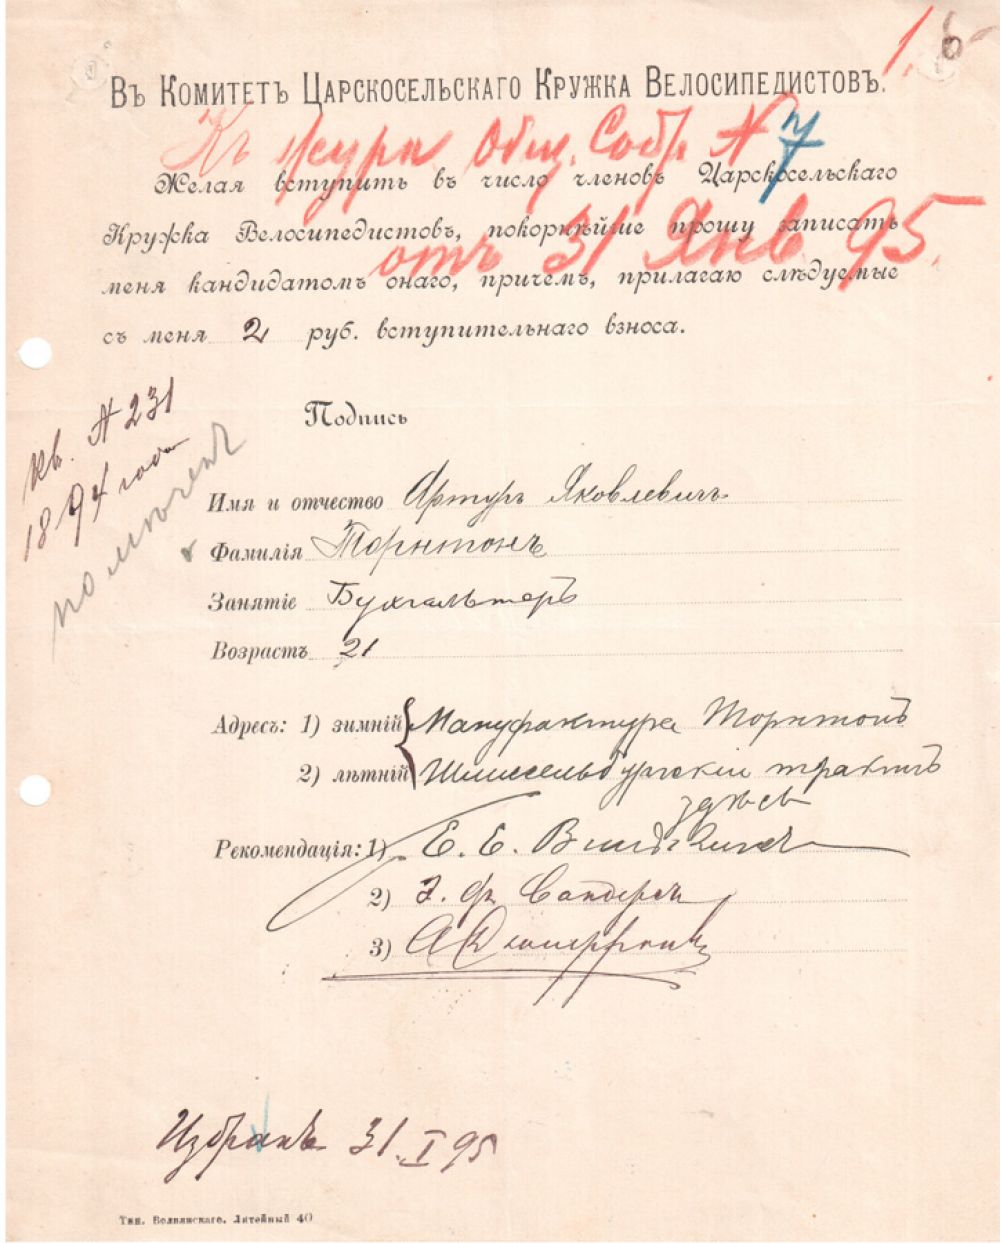 1.
Въ Комитетъ Царскосельскаго Кружка Велосипедистовъ.
Къ журн Общ. Собр. № 7
Желая вступить въ число членовъ Царскосельскаго
Кружка Велосипедистовъ, покорнѣйше прошу записать
отъ 31 Янв. 95.
меня кандидатомъ онаго, причемъ, прилагаю слѣдуемые
съ меня 2 руб. вступительнаго взноса.
Кв. № 231
1894 года
Подпись
Имя и отчество Артуръ Яковлевичъ
Фамилія Торнтонъ
Занятіе Бухгалтеръ
Возрастъ 21
Адресъ: 1) зимній Мануфактура Торнтонъ
2) лѣтній Шлиссельбургскій трактъ
здѣсь
Рекомендація: 1) Е. Е.
2)
3)
Избранъ 31. I 95
Тип. Волпянскаго. Литейный 40